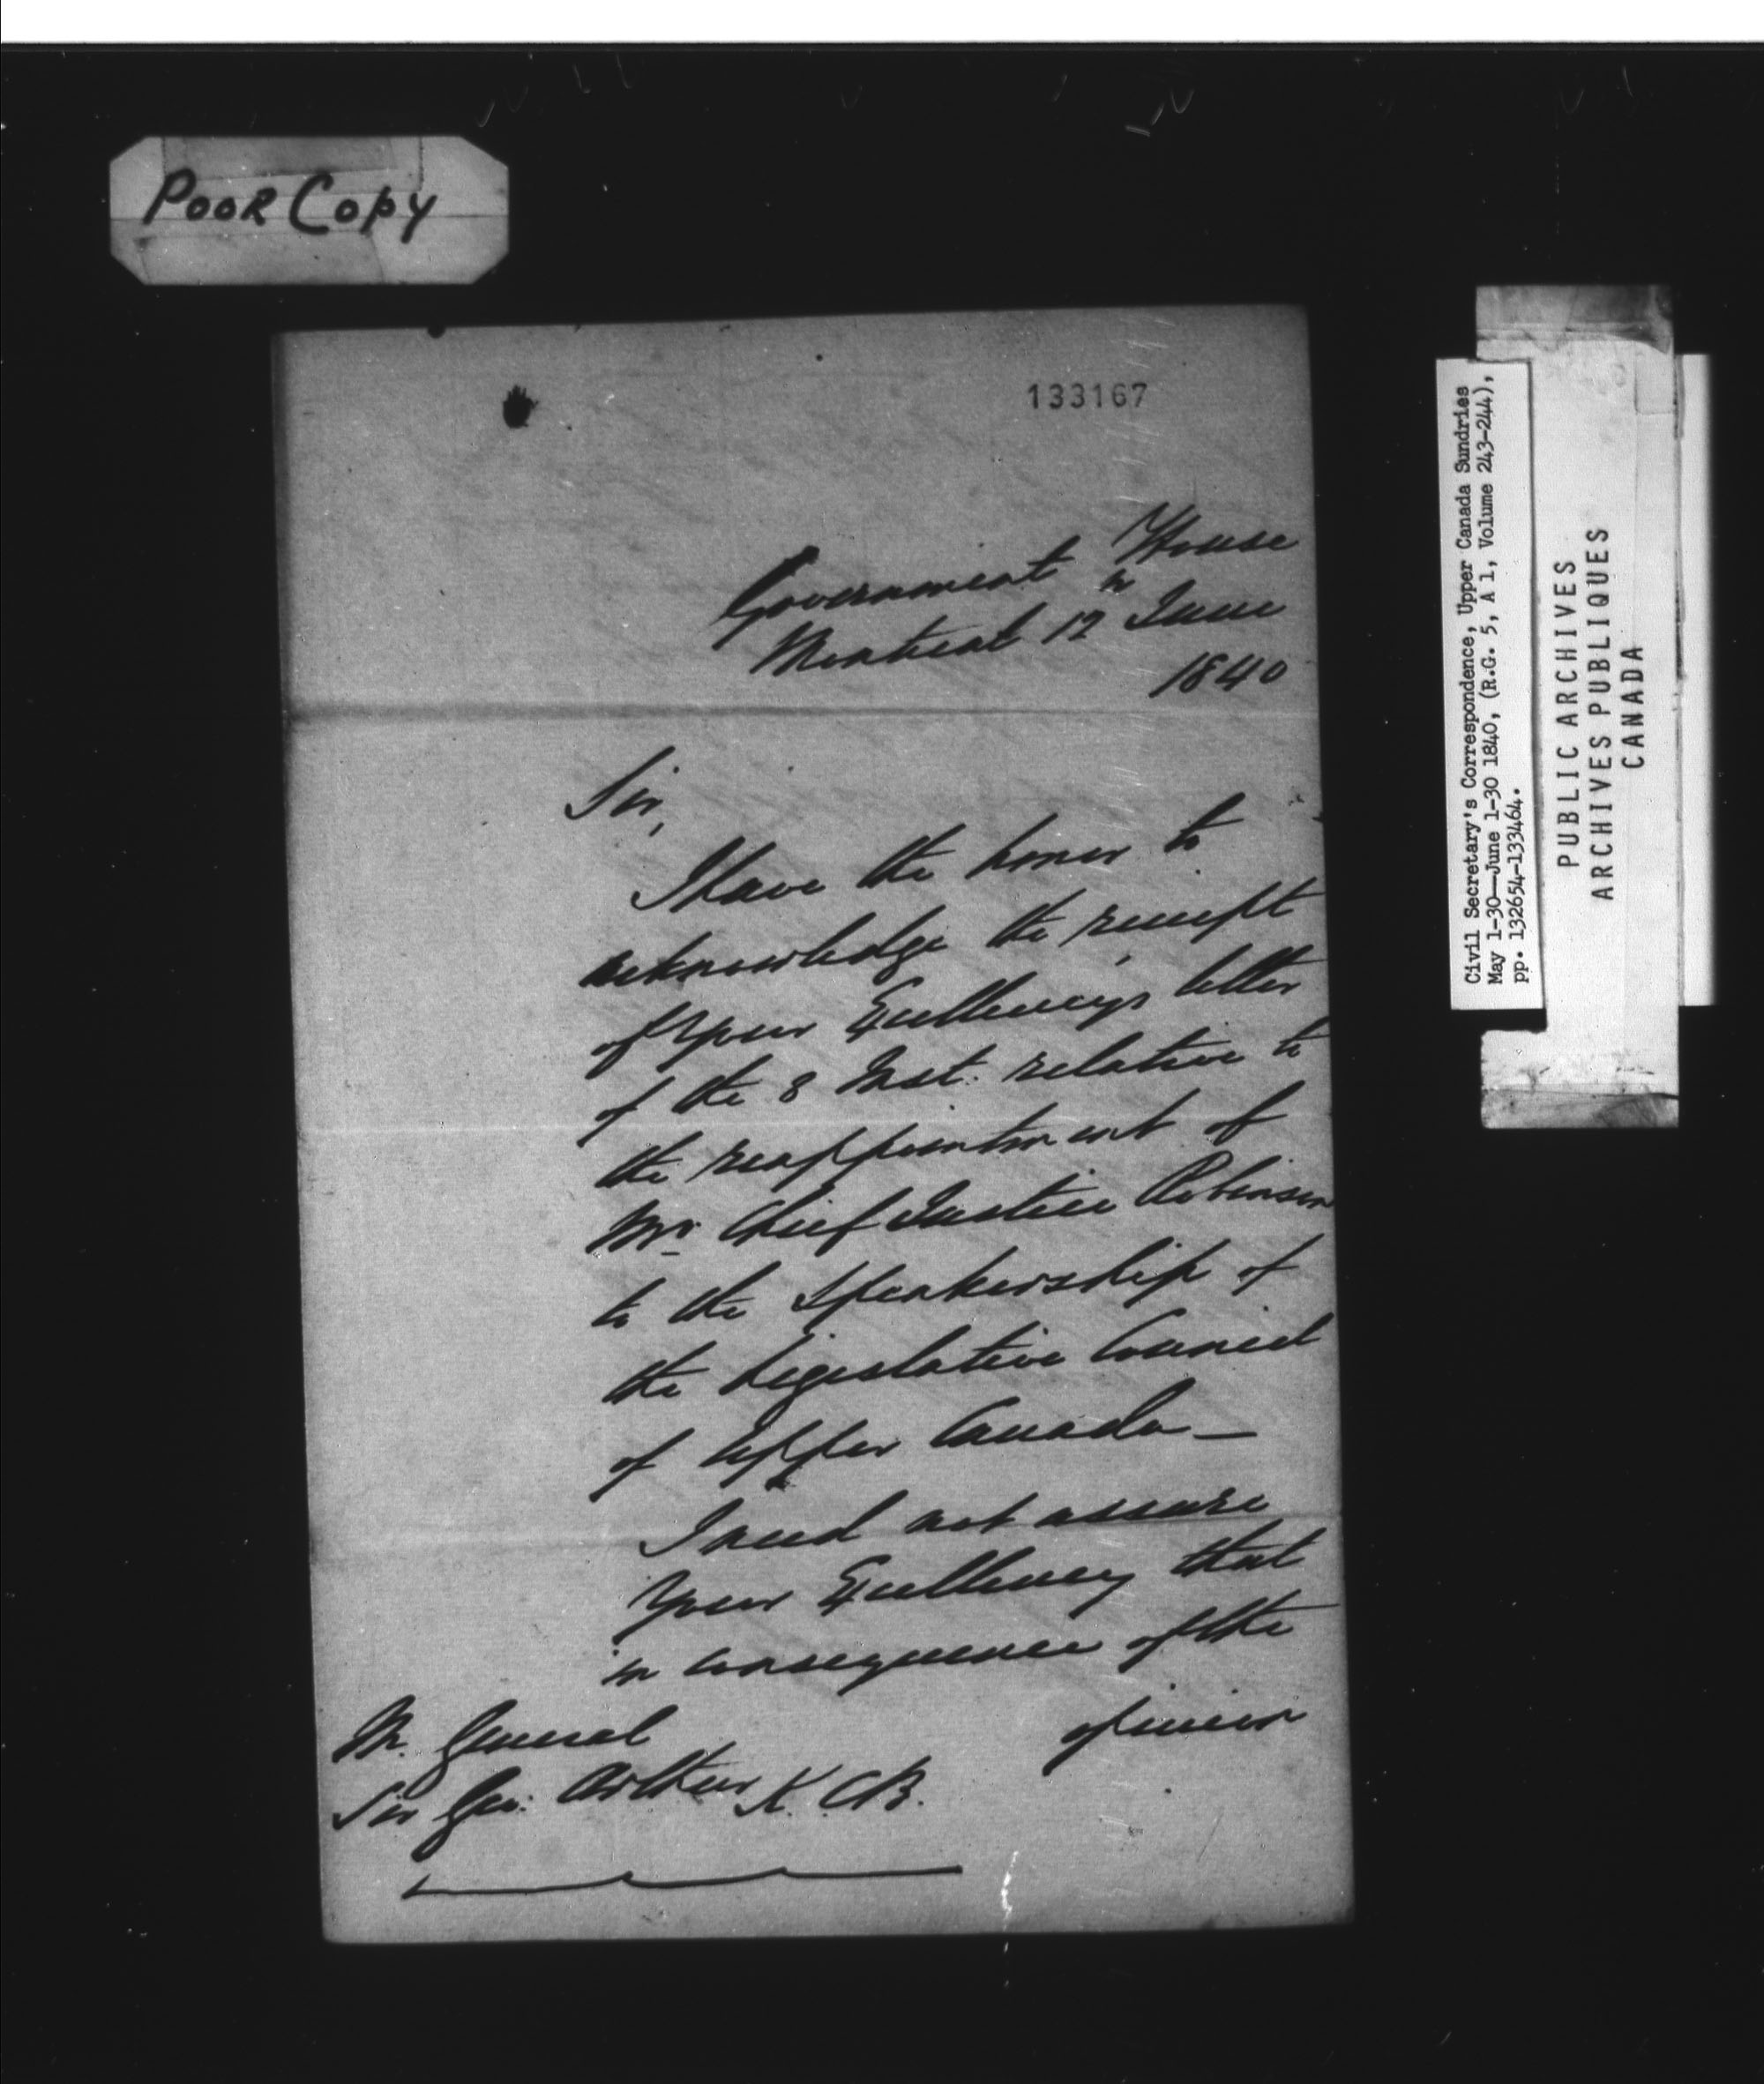 Poor Copy
133167
Government House
Montreal 12th June
1840
Sir,
I have the honor to
acknowledge the receipt
of Your Excellency's letter
of the 8 Inst: relative to
the reappointment of
Mr. Chief Justice Robinson
to the Speakership of
the Legislative Council
of Upper Canada —
I need not assure
Your Excellency that
in consequence of the
opinion
M. General
Sir Geo: Arthur K.C.B.
Civil Secretary's Correspondence, Upper Canada Sundries
May 1-30—June 1-30 1840, (R.G. 5, A 1, Volume 243-244),
pp. 132654-133464.
PUBLIC ARCHIVES
ARCHIVES PUBLIQUES
CANADA